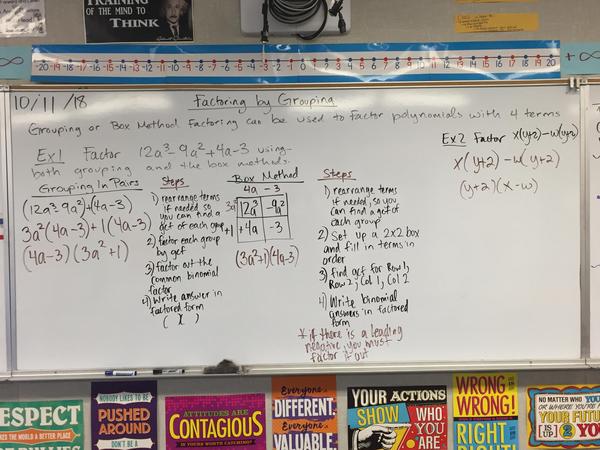 TRAINING
OF THE MIND TO
THINK
-20 -19 -18 -17 -16 -15 -14 -13 -12 -11 -10 -9 -8 -7 -6 -5 -4 -3 -2 -1 0 1 2 3 4 5 6 7 8 9 10 11 12 13 14 15 16 17 18 19 20
+∞
10/11/18
Factoring by Grouping
Grouping or Box Method Factoring can be used to factor polynomials with 4 terms
Ex1 Factor 12a³-9a²+4a-3 using
both grouping and the box methods.
Grouping In Pairs
(12a³-9a²)+(4a-3)
3a²(4a-3)+1(4a-3)
(4a-3)(3a²+1)
Steps
1) rearrange terms
if needed so
you can find a
gcf of each group
2) factor each group
by gcf
3) factor out the
common binomial
factor
4) Write answer in
factored form
( )( )
Box Method
4a -3
3a² 12a³ -9a²
+1 +4a -3
(3a²+1)(4a-3)
Steps
1) rearrange terms
if needed, so you
can find a gcf of
each group
2) Set up a 2x2 box
and fill in terms in
order
3) find gcf for Row 1,
Row 2, Col 1, Col 2
4) Write binomial
answers in factored
form
* if there is a leading
negative, you must
factor it out
Ex2 Factor x(y+2)-w(y+2)
x(y+2)-w(y+2)
(y+2)(x-w)
RESPECT
MAKES THE WORLD A BETTER PLACE
NOBODY LIKES TO BE
PUSHED
AROUND
DON'T BE A
ATTITUDES ARE
CONTAGIOUS
IS YOURS WORTH CATCHING?
Everyone is
DIFFERENT.
Everyone is
VALUABLE.
YOUR ACTIONS
SHOW WHO
YOU
ARE
WRONG IS
WRONG!
RIGHT
NO MATTER WHO YOU
YOUR FUTURE
[IS UP] 2 YOU